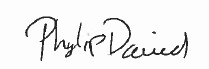 Phylip David